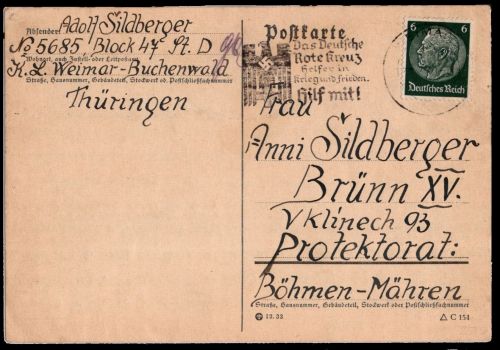 Absender:
Adolf Sildberger
No 5685, Block 47 Ft. D
Wohnort, auch Zustell- oder Leitpostamt
K. L. Weimar-Buchenwald
Straße, Hausnummer, Gebäudeteil, Stockwerk od. Postschließfachnummer
Thüringen
Postkarte
Das Deutsche
Rote Kreuz
helfer in
Krieg und Frieden.
Hilf mit!
6 6
Deutsches Reich
Frau
Anni Sildberger
Brünn XV.
V Klínech 93
Protektorat:
Böhmen-Mähren
Straße, Hausnummer, Gebäudeteil, Stockwerk oder Postschließfachnummer
12. 38
△ C 154